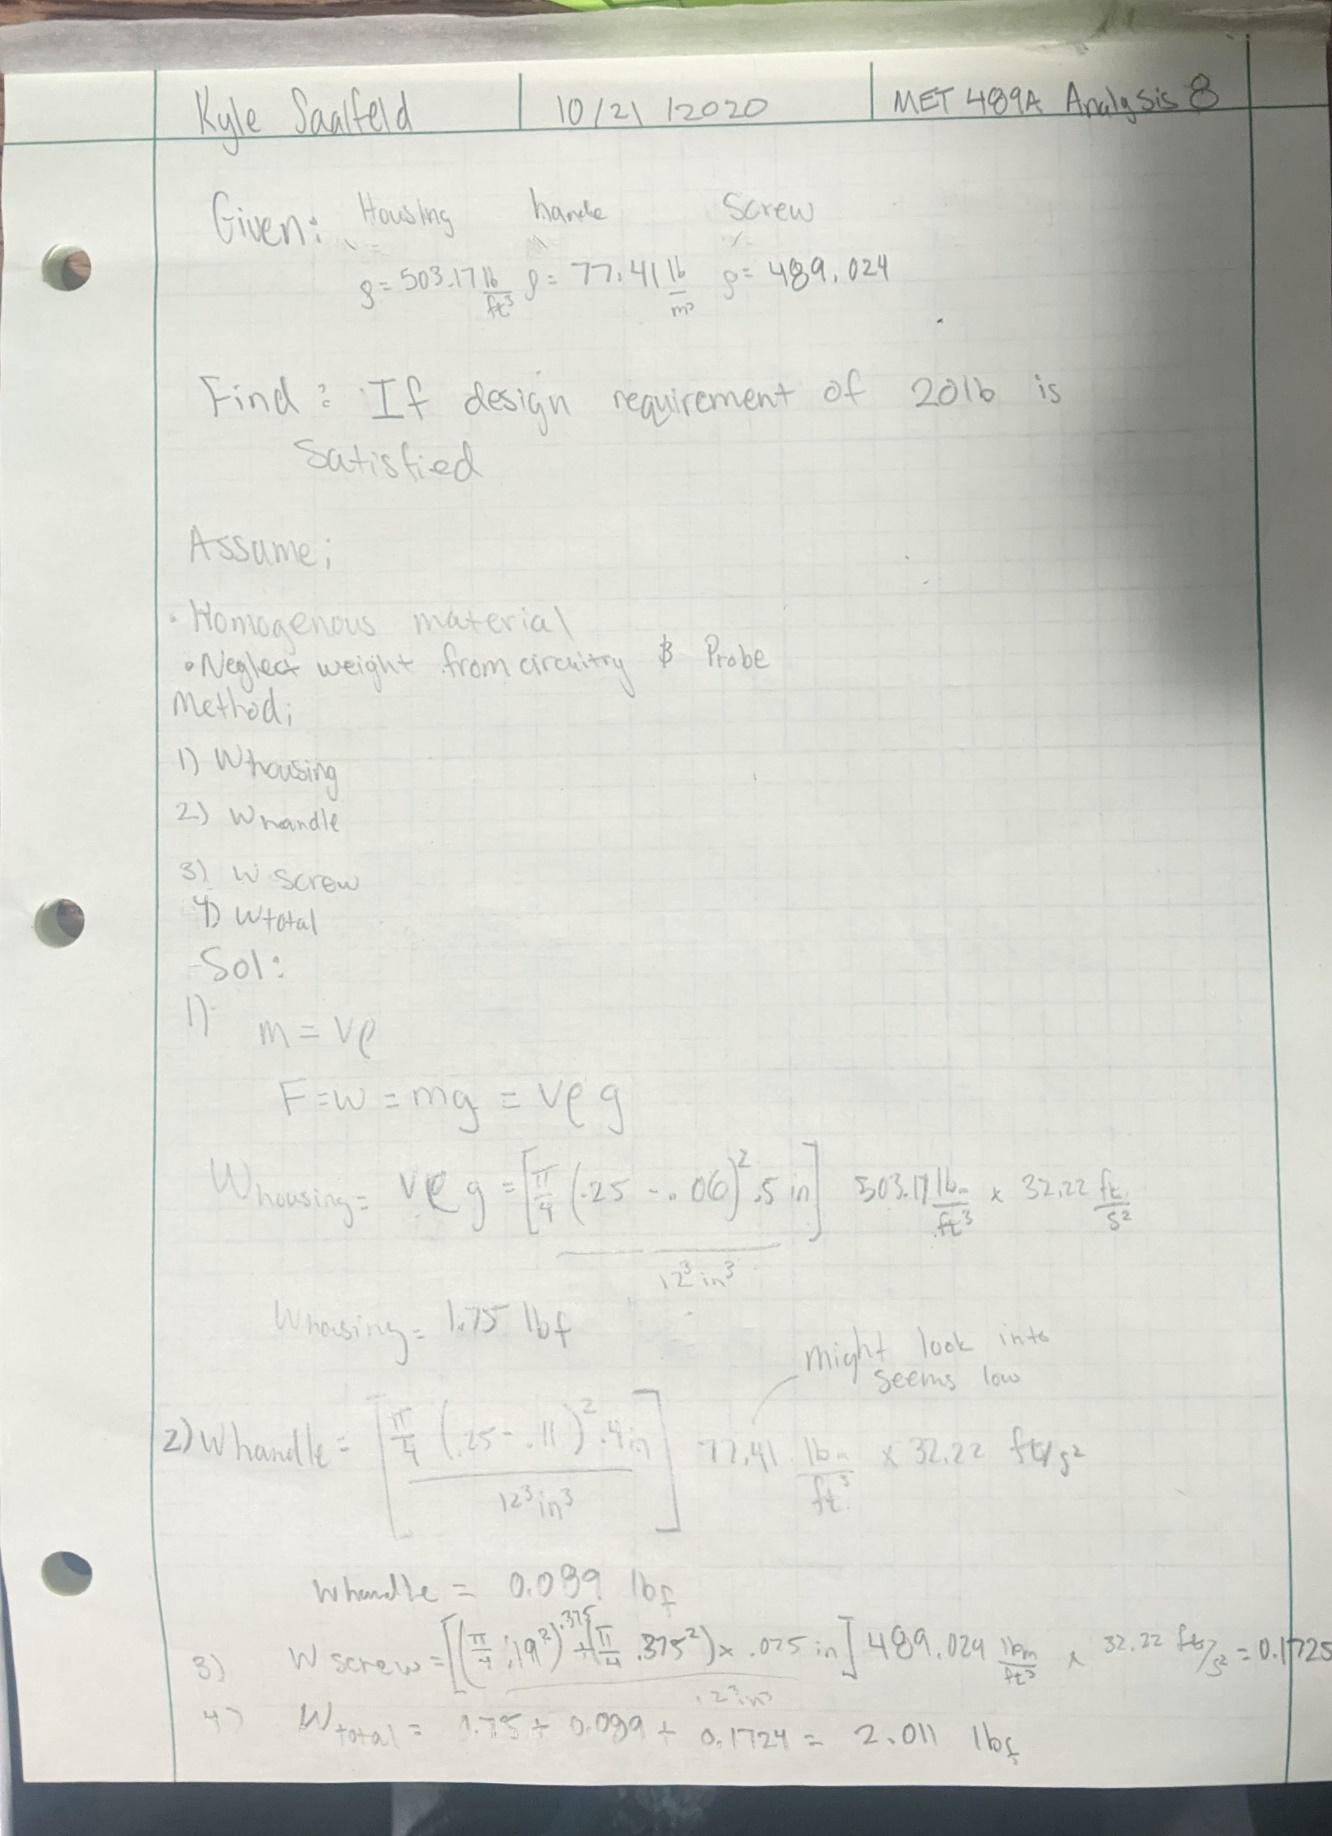 Kyle Saalfeld 10/21/2020 MET 489A Analysis 8
Given: Housing hande Screw
ρ = 503.17 lb/ft³ ρ = 77.41 lb/m³ ρ = 489.024
Find: If design requirement of 20lb is
Satisfied
Assume;
• Homogenous material
• Neglect weight from circuitry & Probe
Method;
1) Whousing
2) Whandle
3) W screw
4) Wtotal
Sol:
1) m = Vρ
F = W = mg = Vρg
Whousing = Vρg = [π/4 (.25 - .06)² .5 in / 12³ in³] 503.17 lbm/ft³ x 32.22 ft/s²
Whousing = 1.75 lbf
might look into
seems low
2) Whandle = [π/4 (.25 - .11)² .4 in / 12³ in³] 77.41 lbm/ft³ x 32.22 ft/s²
Whandle = 0.089 lbf
3) W screw = [((π/4 .19²) .375 + (π/4 .375²) x .075 in / 12³ in³] 489.024 lbm/ft³ x 32.22 ft/s² = 0.1725
4) Wtotal = 1.75 + 0.089 + 0.1724 = 2.011 lbf